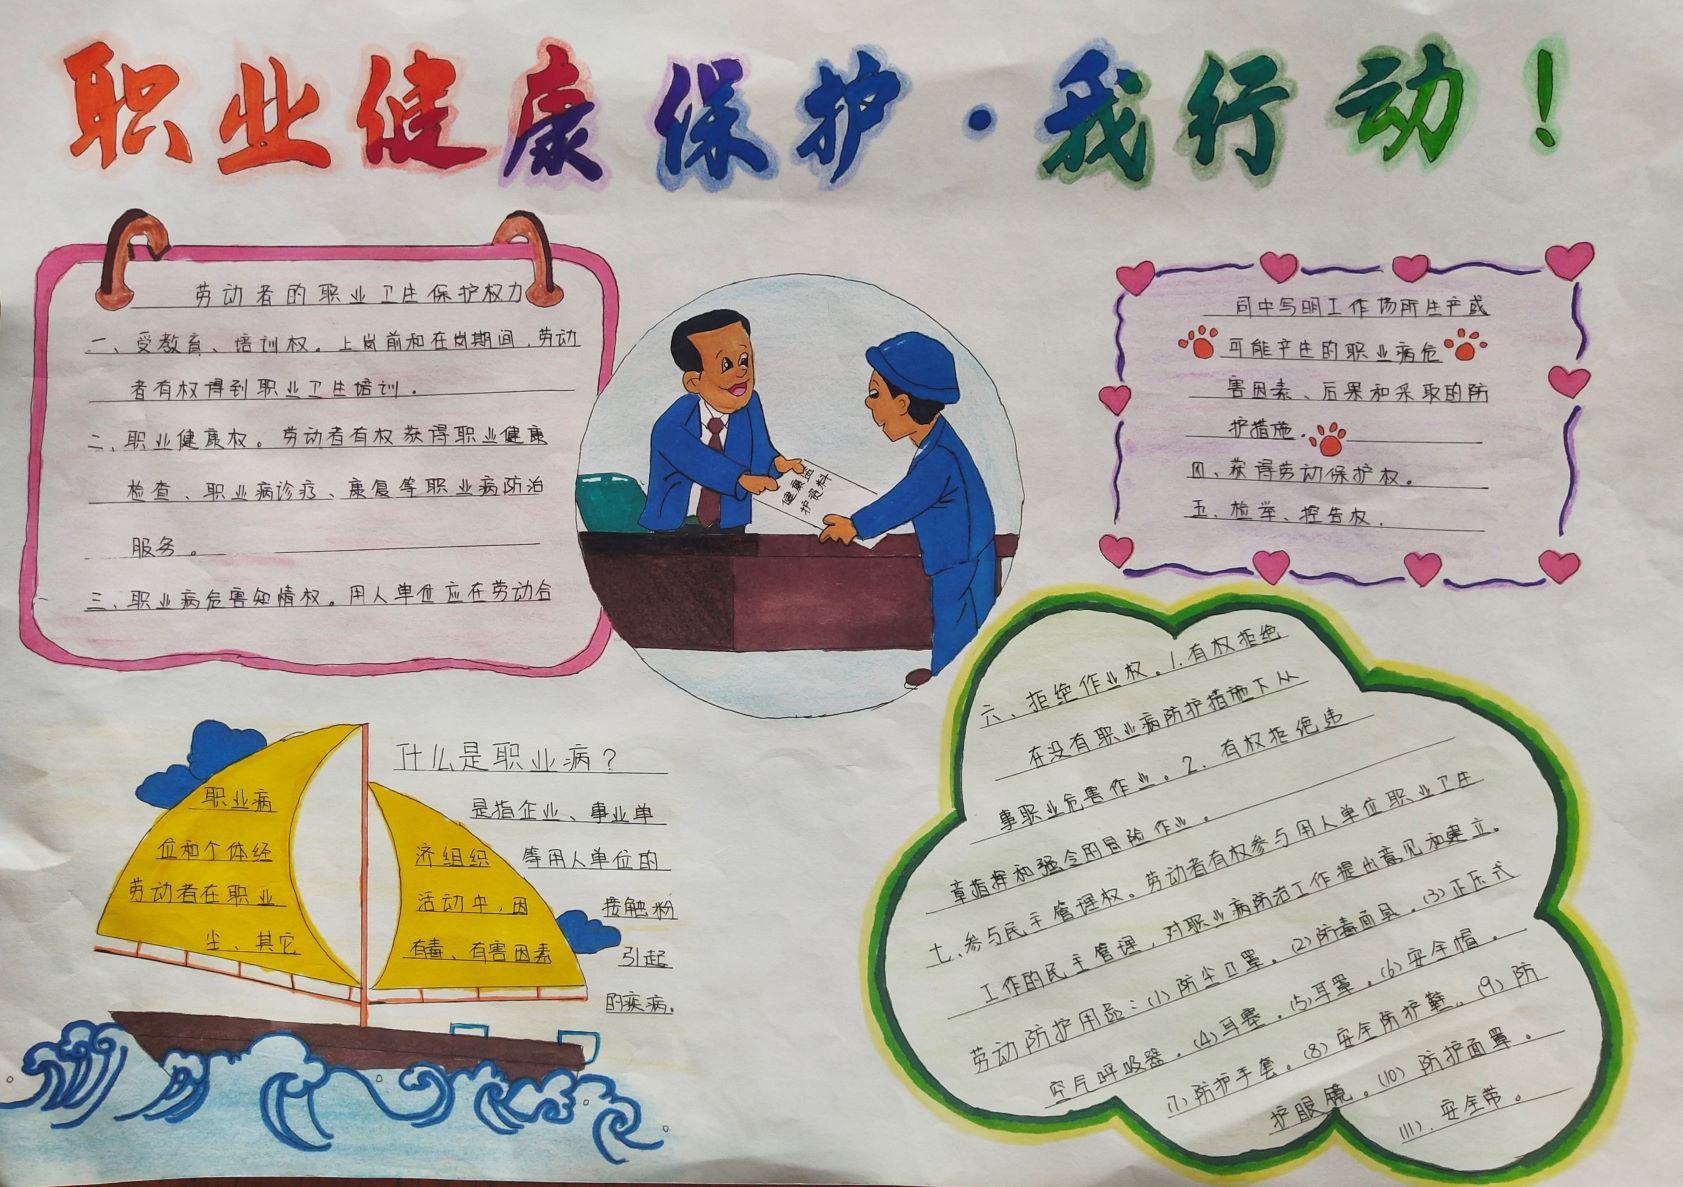 职业健康保护·我行动！
劳动者的职业卫生保护权力
一、受教育、培训权。上岗前和在岗期间，劳动
者有权得到职业卫生培训。
二、职业健康权。劳动者有权获得职业健康
检查、职业病诊疗、康复等职业病防治
服务。
三、职业病危害知情权。用人单位应在劳动合
同中写明工作场所生产或
可能产生的职业病危
害因素、后果和采取的防
护措施。
四、获得劳动保护权。
五、检举、控告权.
健康监
护资料
六、拒绝作业权。1.有权拒绝
在没有职业病防护措施下从
事职业危害作业。2.有权拒绝违
章指挥和强令的冒险作业。
七、参与民主管理权。劳动者有权参与用人单位职业卫生
工作的民主管理，对职业病防治工作提出意见和建立。
劳动防护用品：(1)防尘口罩。(2)防毒面具。(3)正压式
空气呼吸器。(4)耳塞。(5)耳罩。(6)安全帽。
(7)防护手套。(8)安全防护鞋。(9)防
护眼镜。(10)防护面罩。
(11).安全带。
什么是职业病？
职业病 是指企业、事业单
位和个体经 济组织 等用人单位的
劳动者在职业 活动中，因 接触粉
尘、其它 有毒、有害因素 引起
的疾病。